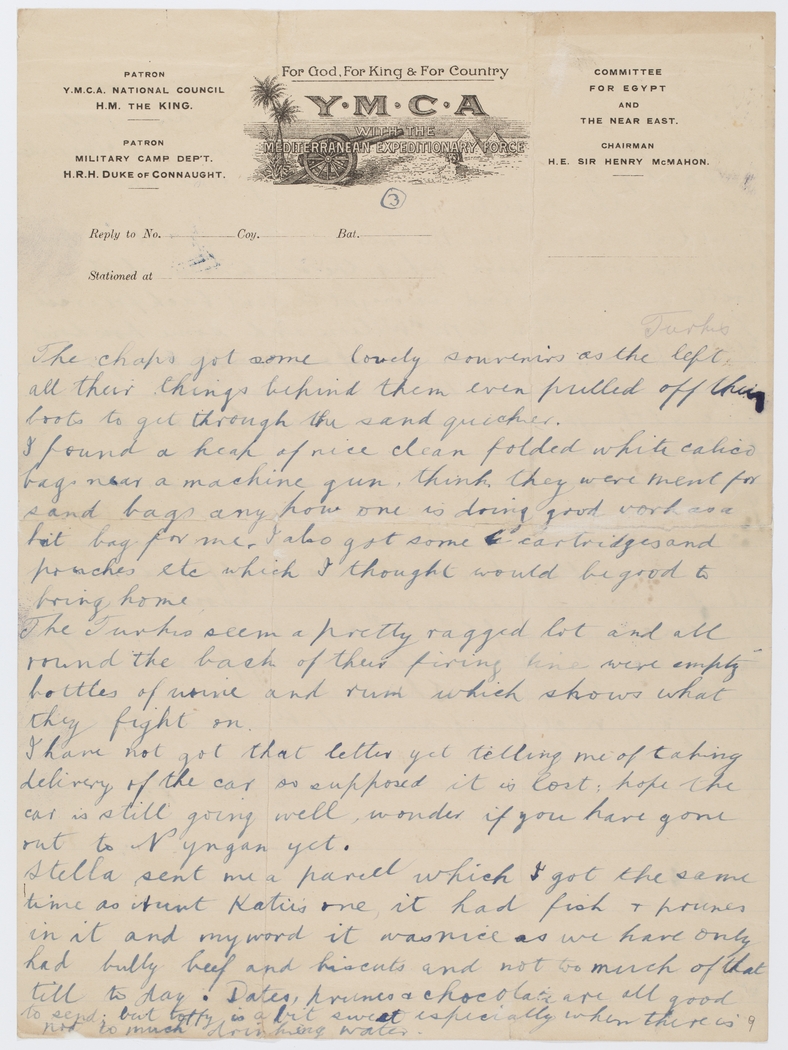 PATRON
Y.M.C.A. NATIONAL COUNCIL
H.M. THE KING.
PATRON
MILITARY CAMP DEP'T.
H.R.H. DUKE OF CONNAUGHT.
For God, For King & For Country
Y·M·C·A
WITH THE
MEDITERRANEAN EXPEDITIONARY FORCE
COMMITTEE
FOR EGYPT
AND
THE NEAR EAST.
CHAIRMAN
H.E. SIR HENRY McMAHON.
3
Reply to No. Coy. Bat.
Stationed at
Turkis
The chaps got some lovely souvenirs as the left
all their things behind them even pulled off their
boots to get through the sand quicker.
I found a heap of nice clean folded white calico
bags near a machine gun, think they were ment for
sand bags any how one is doing good work as a
kit bag for me. I also got some cartridges and
pouches etc which I thought would be good to
bring home
The Turkis seem a pretty ragged lot and all
round the back of their firing line were empty
bottles of wine and rum which shows what
they fight on.
I have not got that letter yet telling me of taking
delivery of the car so supposed it is lost; hope the
car is still going well, wonder if you have gone
out to Nyngan yet.
Stella sent me a parcell which I got the same
time as Aunt Katies one, it had fish & prunes
in it and my word it was nice as we have only
had bully beef and biscuts and not to much of that
till to day. Dates, prunes & chocolate are all good
to send; but toffy is a bit sweet especially when there is
not to much drinking water.
9